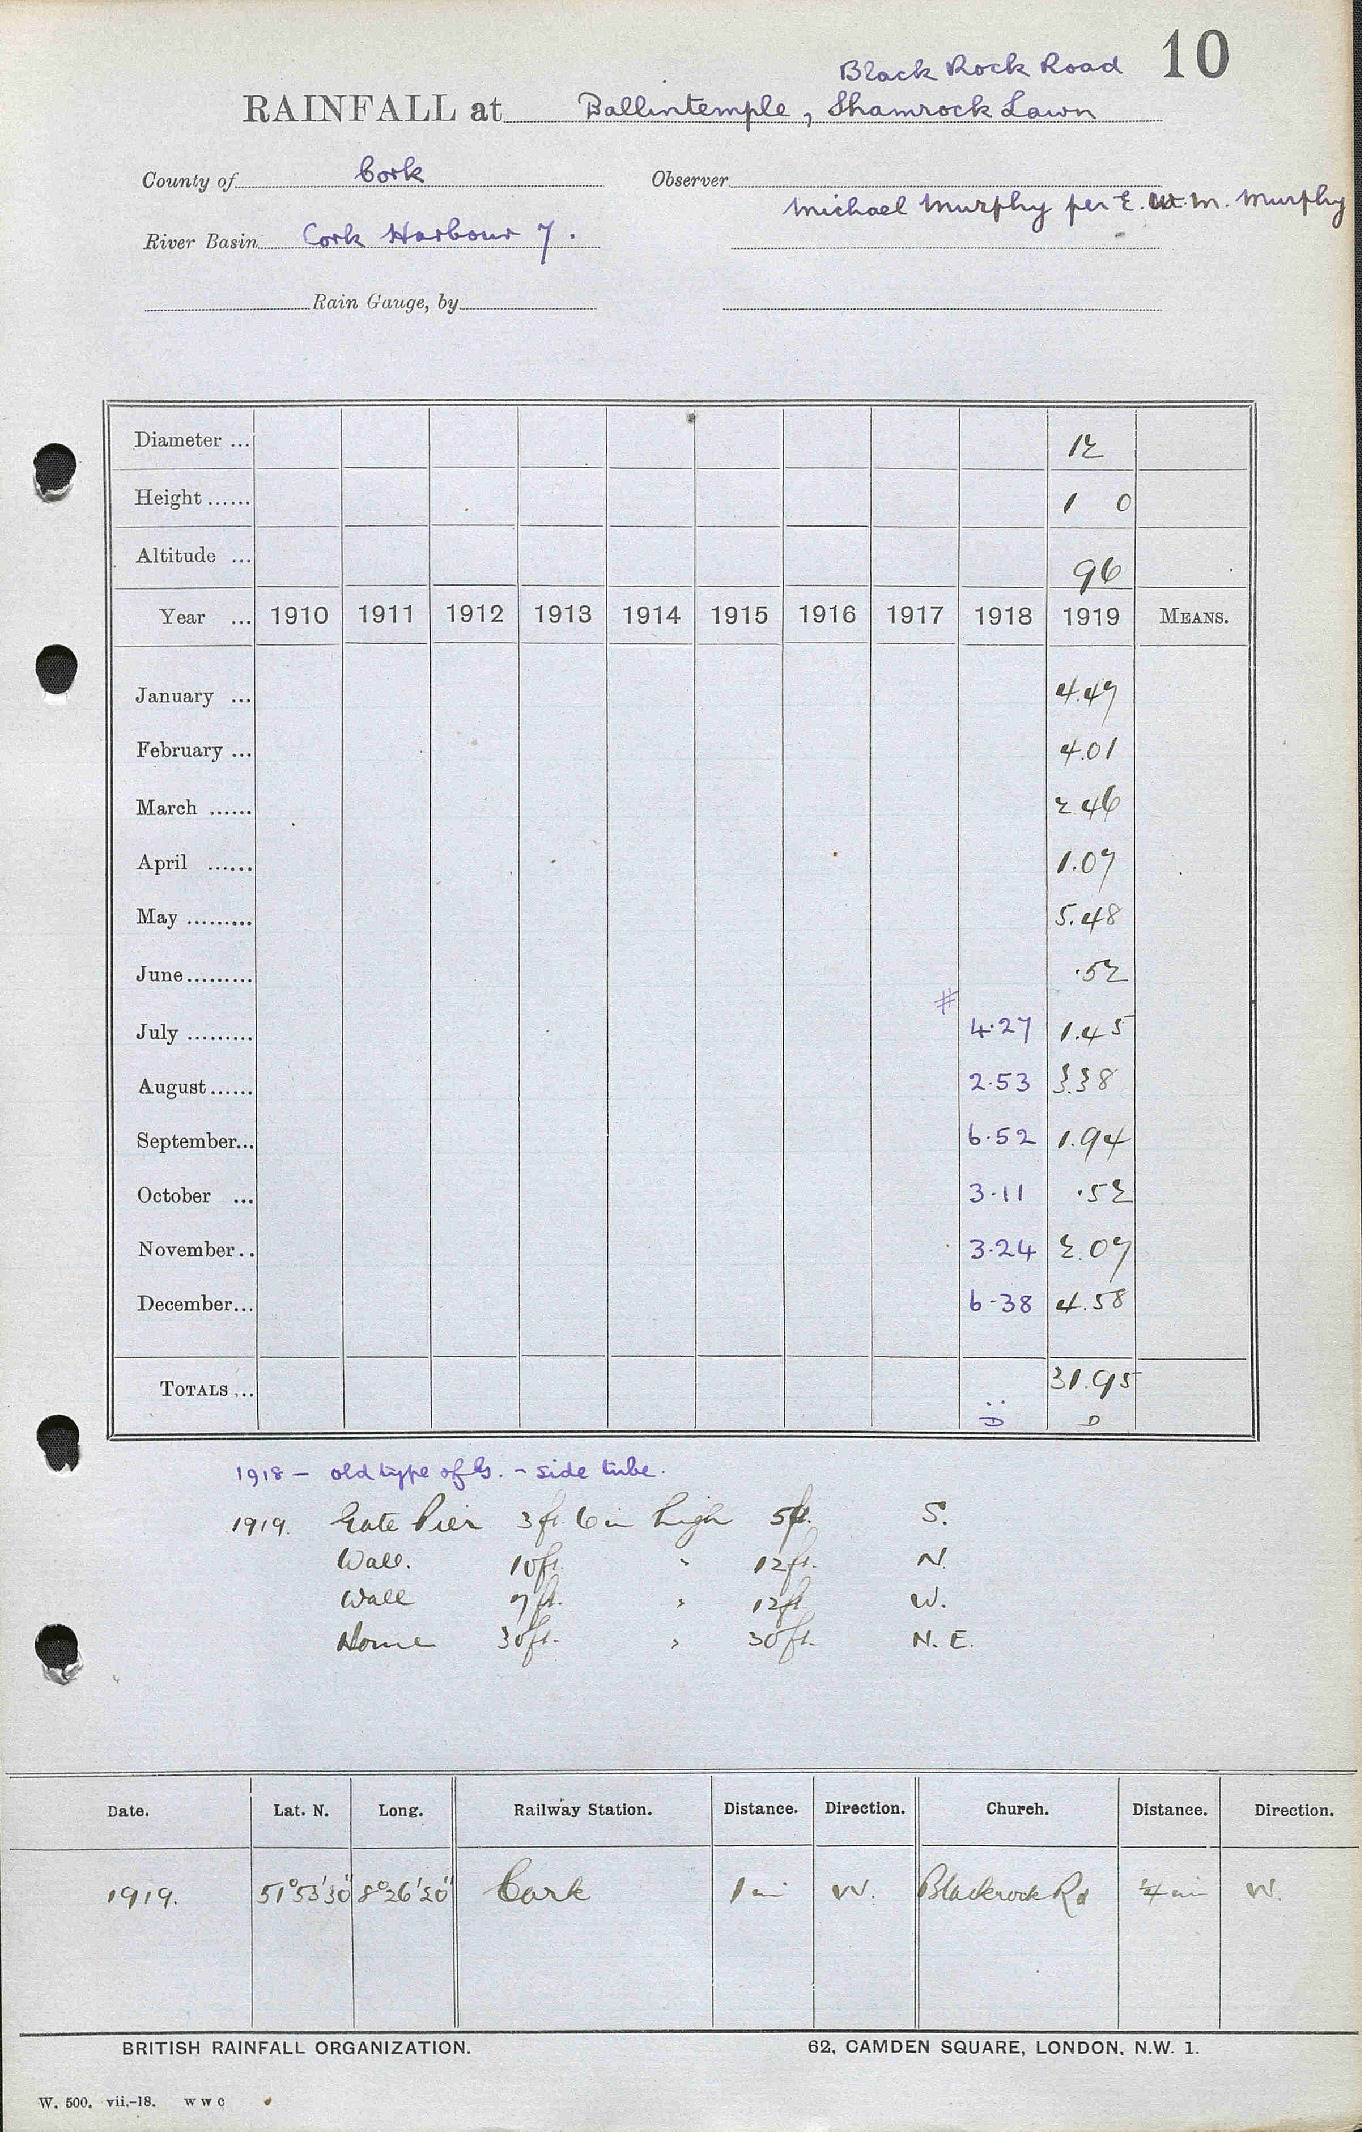 10
Black Rock Road
RAINFALL at Ballintemple, Shamrock Lawn
County of Cork Observer
Michael Murphy per E. M. Murphy
River Basin Cork Harbour 7.
Rain Gauge, by
Diameter ... 12
Height ...... 1 0
Altitude ... 96
Year ... 1910 1911 1912 1913 1914 1915 1916 1917 1918 1919 MEANS.
January ... 4.47
February ... 4.01
March ...... 2.46
April ...... 1.07
May ......... 5.48
June ......... .52
#
July ......... 4.27 1.45
August ...... 2.53 3.38
September ... 6.52 1.94
October ... 3.11 .52
November .. 3.24 2.07
December ... 6.38 4.58
TOTALS ... 31.95
D D
1918 – old type of G. – side tube.
1919. Gate Pier 3 ft. 6 in high 5ft. S.
Wall. 10ft. " 12ft. N.
Wall 7ft. " 12ft W.
House 30ft. " 30ft. N.E.
Date. Lat. N. Long. Railway Station. Distance. Direction. Church. Distance. Direction.
1919. 51°53'30" 8°26'20" Cork 1 mi W. Blackrock Rd ¼ mi W.
BRITISH RAINFALL ORGANIZATION. 62, CAMDEN SQUARE, LONDON, N.W. 1.
W. 500. vii.-18. W W C